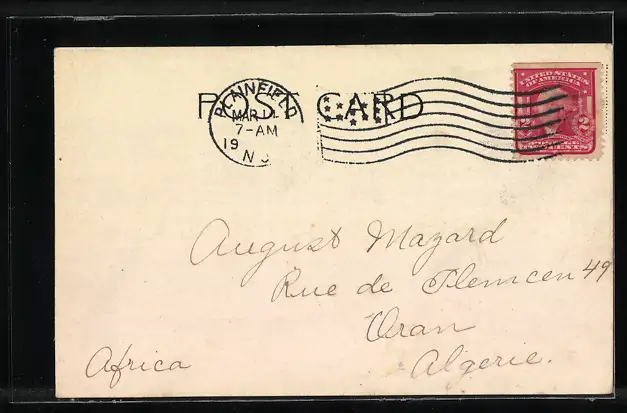 POST CARD
PLAINFIELD
MAR 14
7-AM
19
N J
UNITED STATES
OF AMERICA
2 2
August Mazard
Rue de Tlemcen 49
Oran
Africa
Algerie.